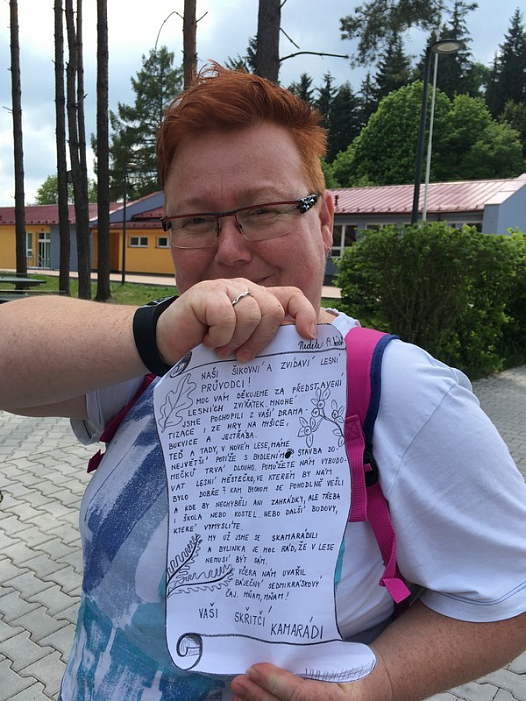 Neděle 19.
NAŠI ŠIKOVNÍ A ZVÍDAVÍ LESNÍ
PRŮVODCI!
MOC VÁM DĚKUJEME ZA PŘEDSTAVENÍ
LESNÍCH ZVÍŘÁTEK. MNOHÉ
JSME POCHOPILI Z VAŠÍ DRAMA-
TIZACE I ZE HRY NA MYŠICE,
BUKVICE A JESTŘÁBA.
TEĎ A TADY, V NOVÉM LESE, MÁME
NEJVĚTŠÍ POTÍŽE S BYDLENÍM. STAVBA DO-
MEČKŮ TRVÁ DLOUHO. POMŮŽETE NÁM VYBUDO-
VAT LESNÍ MĚSTEČKO, VE KTERÉM BY NÁM
BYLO DOBŘE? KAM BYCHOM SE POHODLNĚ VEŠLI
A KDE BY NECHYBĚLI ANI ZAHRÁDKY, ALE TŘEBA
I ŠKOLA NEBO KOSTEL NEBO DALŠÍ BUDOVY,
KTERÉ VYMYSLÍTE.
MY UŽ JSME SE SKAMARÁDILI
A BYLINKA JE MOC RÁD, ŽE V LESE
NEMUSÍ BÝT SÁM.
VČERA NÁM UVAŘIL
BÁJEČNÝ SEDMIKRÁSKOVÝ
ČAJ. MŇAM, MŇAM!
VAŠI SKŘÍTČÍ
KAMARÁDI